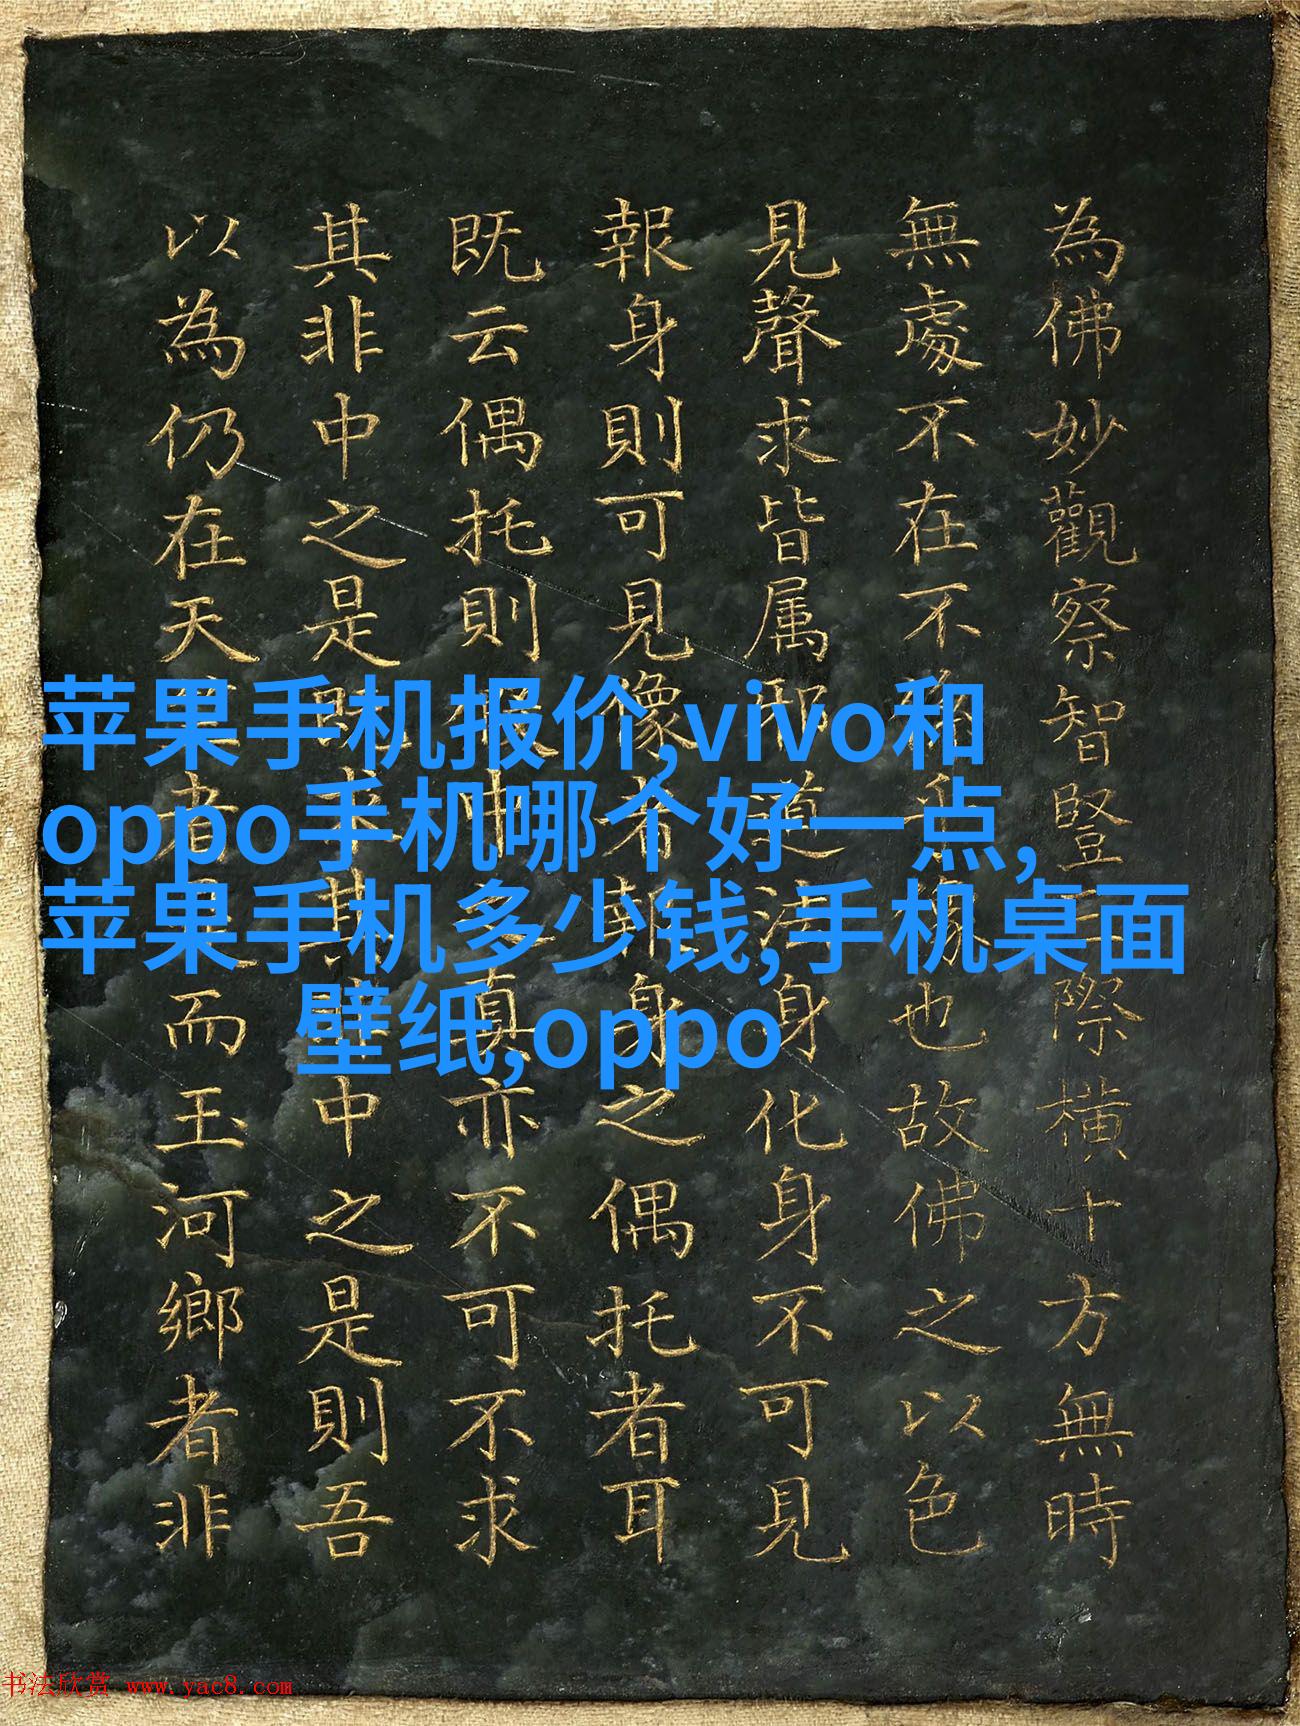 為佛妙觀察智豎三際橫十方無時
無處不在不也故佛之以色
見聲求皆属邪道法身化身不可見
報身則可見像者報身之偶托者耳
既云偶托則中真亦不可不求
其非中之是既求其中之是則吾
以為仍在天者而玉河鄉者非
苹果手机报价,vivo和
oppo手机哪个好一点,
苹果手机多少钱,手机桌面
壁纸,oppo
书法欣赏 www.yac8.com